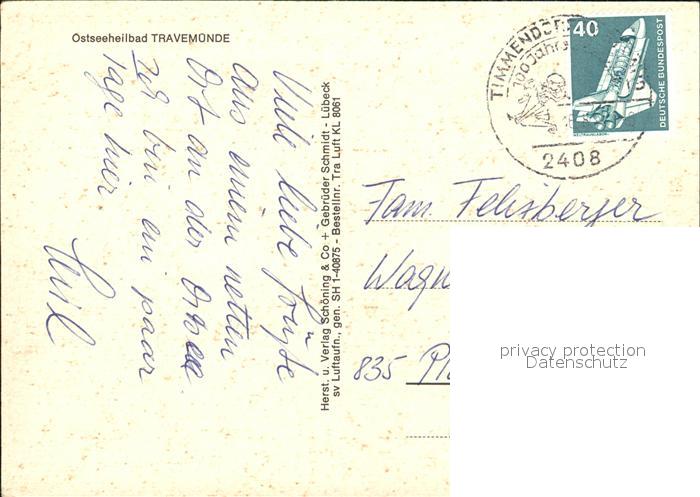 Ostseeheilbad TRAVEMÜNDE
Viele liebe Grüße
aus einem netten
Ort an der Ostsee.
Ich bin ein paar
Tage hier.
Herst. u. Verlag Schöning & Co + Gebrüder Schmidt - Lübeck
sv Luftaufn., gen. SH 1-40875 - Bestellnr. Tra Luft KL 8061
TIMMENDORF
100 Jahre
2408
40
DEUTSCHE BUNDESPOST
Fam. Felixberger
Wagn
835 Pl
privacy protection
Datenschutz